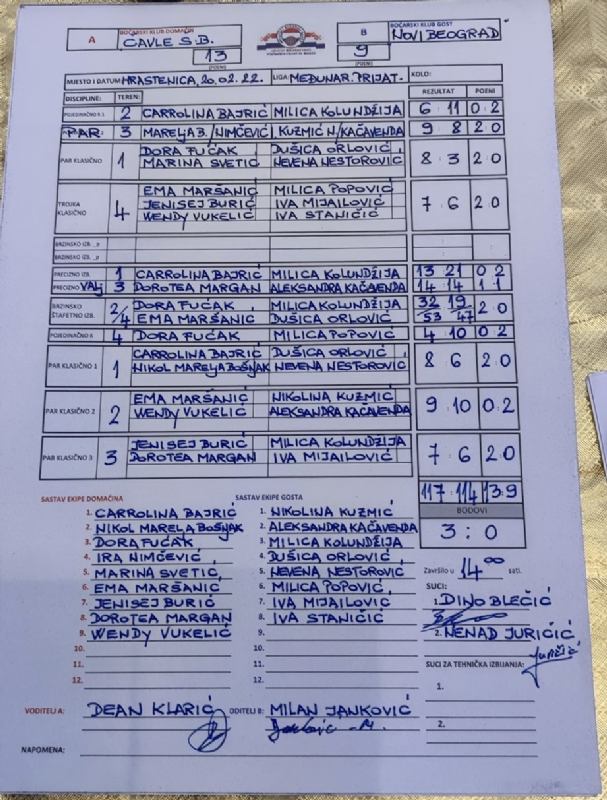 BOĆARSKI KLUB DOMAĆIN
A ČAVLE S.B.
13
(POENI)
BOĆARSKI KLUB GOST
B NOVI BEOGRAD
9
(POENI)
MJESTO I DATUM HRASTENICA, 20.02.22. LIGA MEĐUNAR. PRIJAT. KOLO:
DISCIPLINE: TEREN: REZULTAT POENI
2 CARROLINA BAJRIĆ MILICA KOLUNDŽIJA 6 : 11 0 : 2
PAR: 3 MARELJA B./NIMČEVIĆ I. KUŽMIĆ N/KAČAVENDA 9 : 8 2 : 0
PAR KLASIČNO 1 DORA FUĆAK DUŠICA ORLOVIĆ 8 : 3 2 : 0
MARINA SVETIĆ NEVENA NESTOROVIĆ
TROJKA KLASIČNO 4 EMA MARŠANIĆ MILICA POPOVIĆ 7 : 6 2 : 0
JENISEJ BURIĆ IVA MIJAILOVIĆ
WENDY VUKELIĆ IVA STANIČIĆ
BRZINSKO IZB.
BRZINSKO IZB.
PRECIZNO IZB. 1 CARROLINA BAJRIĆ MILICA KOLUNDŽIJA 13 : 21 0 : 2
PRECIZNO VALJ 3 DOROTEA MARGAN ALEKSANDRA KAČAVENDA 14 : 14 1 : 1
BRZINSKO ŠTAFETNO IZB. 2/4 DORA FUĆAK MILICA KOLUNDŽIJA 32/53 19/47 2 : 0
EMA MARŠANIĆ DUŠICA ORLOVIĆ
4 DORA FUĆAK MILICA POPOVIĆ 4 : 10 0 : 2
PAR KLASIČNO 1 1 CARROLINA BAJRIĆ DUŠICA ORLOVIĆ 8 : 6 2 : 0
NIKOL MARELJA BOŠNJAK NEVENA NESTOROVIĆ
PAR KLASIČNO 2 2 EMA MARŠANIĆ NIKOLINA KUZMIĆ 9 : 10 0 : 2
WENDY VUKELIĆ ALEKSANDRA KAČAVENDA
PAR KLASIČNO 3 3 JENISEJ BURIĆ MILICA KOLUNDŽIJA 7 : 6 2 : 0
DOROTEA MARGAN IVA MIJAILOVIĆ
117 : 114 13 : 9
BODOVI
3 : 0
SASTAV EKIPE DOMAĆINA SASTAV EKIPE GOSTA
1. CARROLINA BAJRIĆ 1. NIKOLINA KUZMIĆ
2. NIKOL MARELA BOŠNJAK 2. ALEKSANDRA KAČAVENDA
3. DORA FUĆAK 3. MILICA KOLUNDŽIJA
4. IRA NIMČEVIĆ 4. DUŠICA ORLOVIĆ
5. MARINA SVETIĆ 5. NEVENA NESTOROVIĆ
6. EMA MARŠANIĆ 6. MILICA POPOVIĆ
7. JENISEJ BURIĆ 7. IVA MIJAILOVIĆ
8. DOROTEA MARGAN 8. IVA STANIČIĆ
9. WENDY VUKELIĆ 9.
10. 10.
11. 11.
12. 12.
Završilo u 14⁰⁰ sati.
SUCI:
1. DINO BLEČIĆ
2. NENAD JURIČIĆ
SUCI ZA TEHNIČKA IZBIJANJA:
1.
2.
VODITELJ A: DEAN KLARIĆ ODITELJ B: MILAN JANKOVIĆ
NAPOMENA: